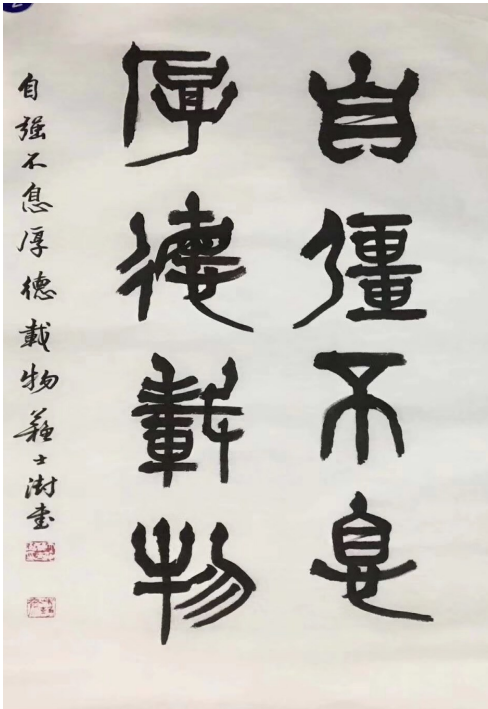 自彊不息
厚德載物
自强不息厚德載物蘇士澍书